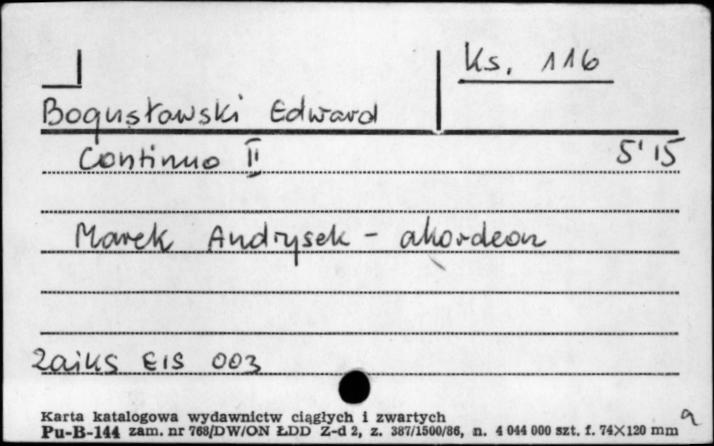 Ks. 116
Bogusławski Edward
Continuo II 5'15
Marek Andrysek - akordeon
Zaiks EIS 003
Karta katalogowa wydawnictw ciągłych i zwartych
Pu-B-144 zam. nr 768/DW/ON ŁDD Z-d 2, z. 387/1500/86, n. 4 044 000 szt. f. 74×120 mm